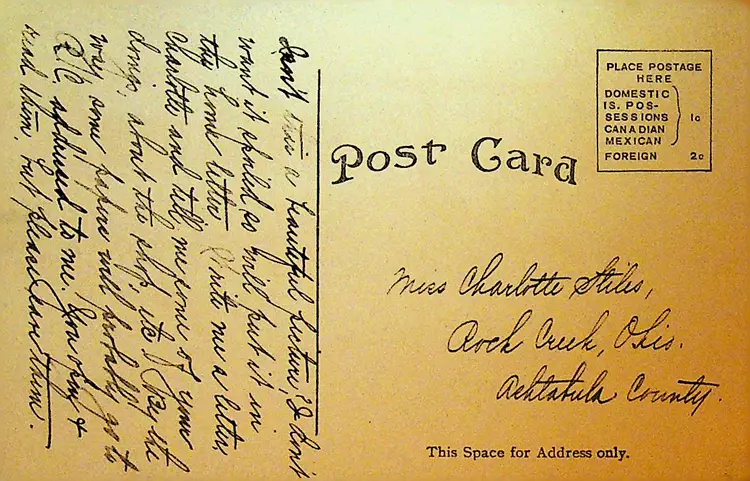 Isn't this a beautiful picture? I don't
want it spoiled so will put it in
the home letter. Write me a letter
Charlotte and tell me some of your
doings, about the shop, etc. By the
way, some papers will probably go to
R.C. addressed to me. You open &
read them, but please save them.
Post Card
PLACE POSTAGE
HERE
DOMESTIC
IS. POS-
SESSIONS 1c
CANADIAN
MEXICAN
FOREIGN 2c
Miss Charlotte Stiles,
Rock Creek, Ohio.
Ashtabula County.
This Space for Address only.